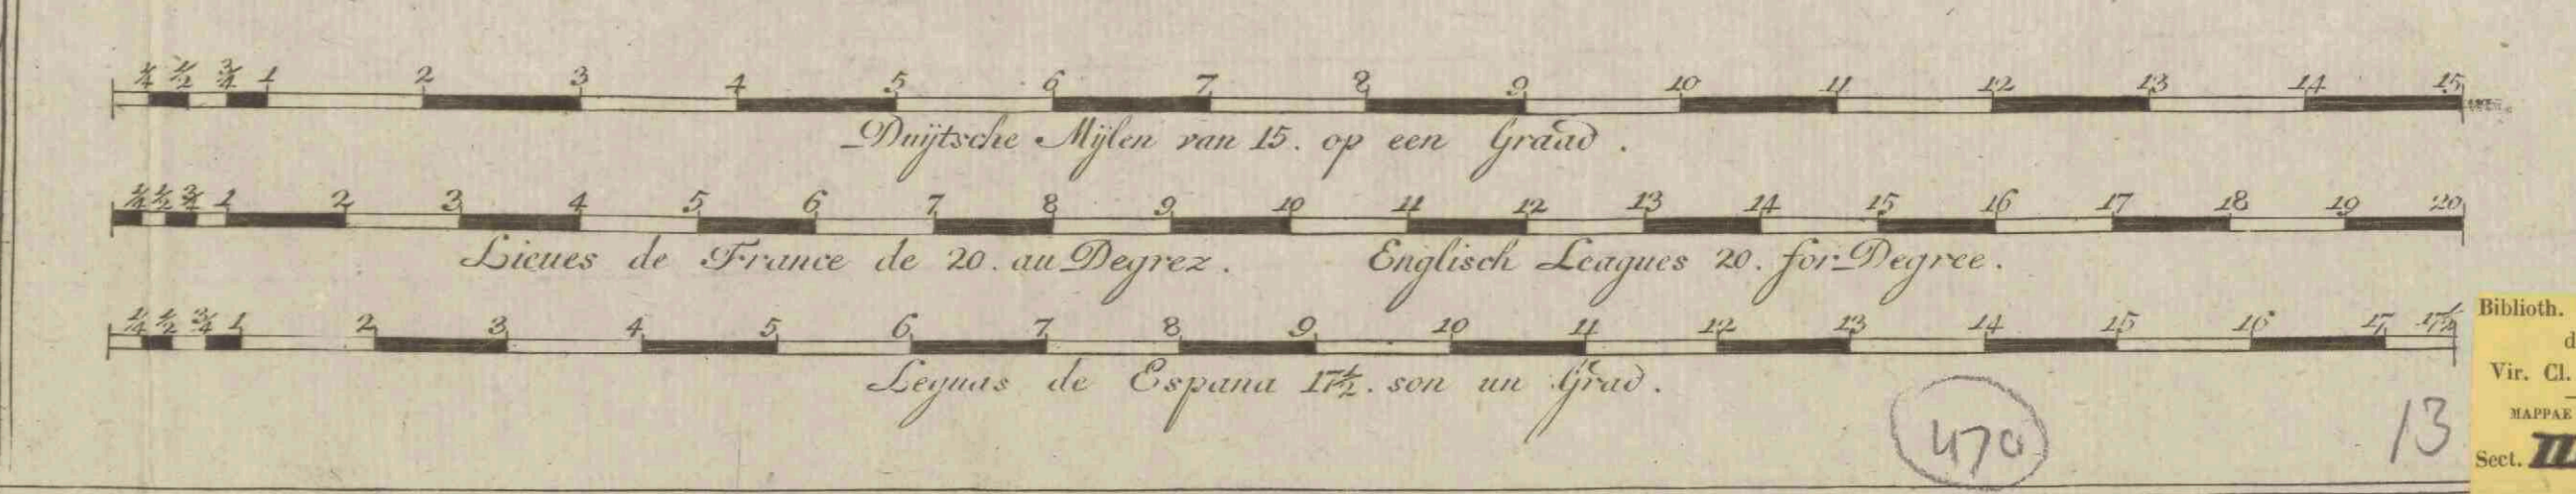 1/4 1/2 3/4 1 2 3 4 5 6 7 8 9 10 11 12 13 14 15
Duÿtsche Mÿlen van 15. op een Graad.
1/4 1/2 3/4 1 2 3 4 5 6 7 8 9 10 11 12 13 14 15 16 17 18 19 20
Lieues de France de 20. au Degrez. Englisch Leagues 20. for Degree.
1/4 1/2 3/4 1 2 3 4 5 6 7 8 9 10 11 12 13 14 15 16 17 17 1/2
Leguas de Espana 17 1/2. son un Grad.
470
13
Biblioth.
d
Vir. Cl.
MAPPAE
Sect.